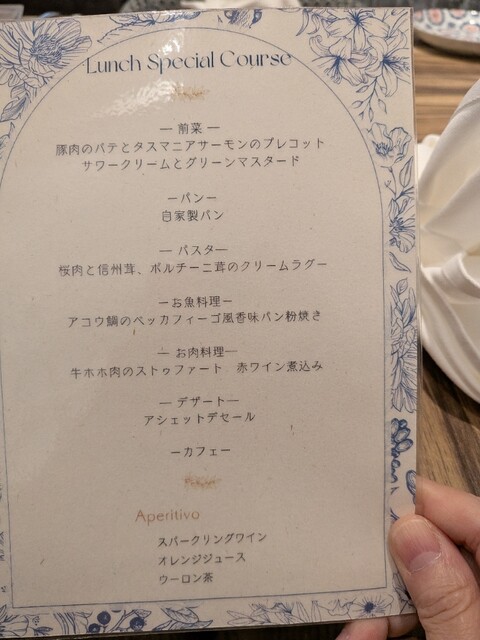 Lunch Special Course
— 前菜 —
豚肉のパテとタスマニアサーモンのプレコット
サワークリームとグリーンマスタード
—パン—
自家製パン
—パスタ—
桜肉と信州茸、ポルチーニ茸のクリームラグー
—お魚料理—
アコウ鯛のベッカフィーゴ風香味パン粉焼き
— お肉料理—
牛ホホ肉のストゥファート 赤ワイン煮込み
—デザート—
アシェットデセール
—カフェー
Aperitivo
スパークリングワイン
オレンジジュース
ウーロン茶